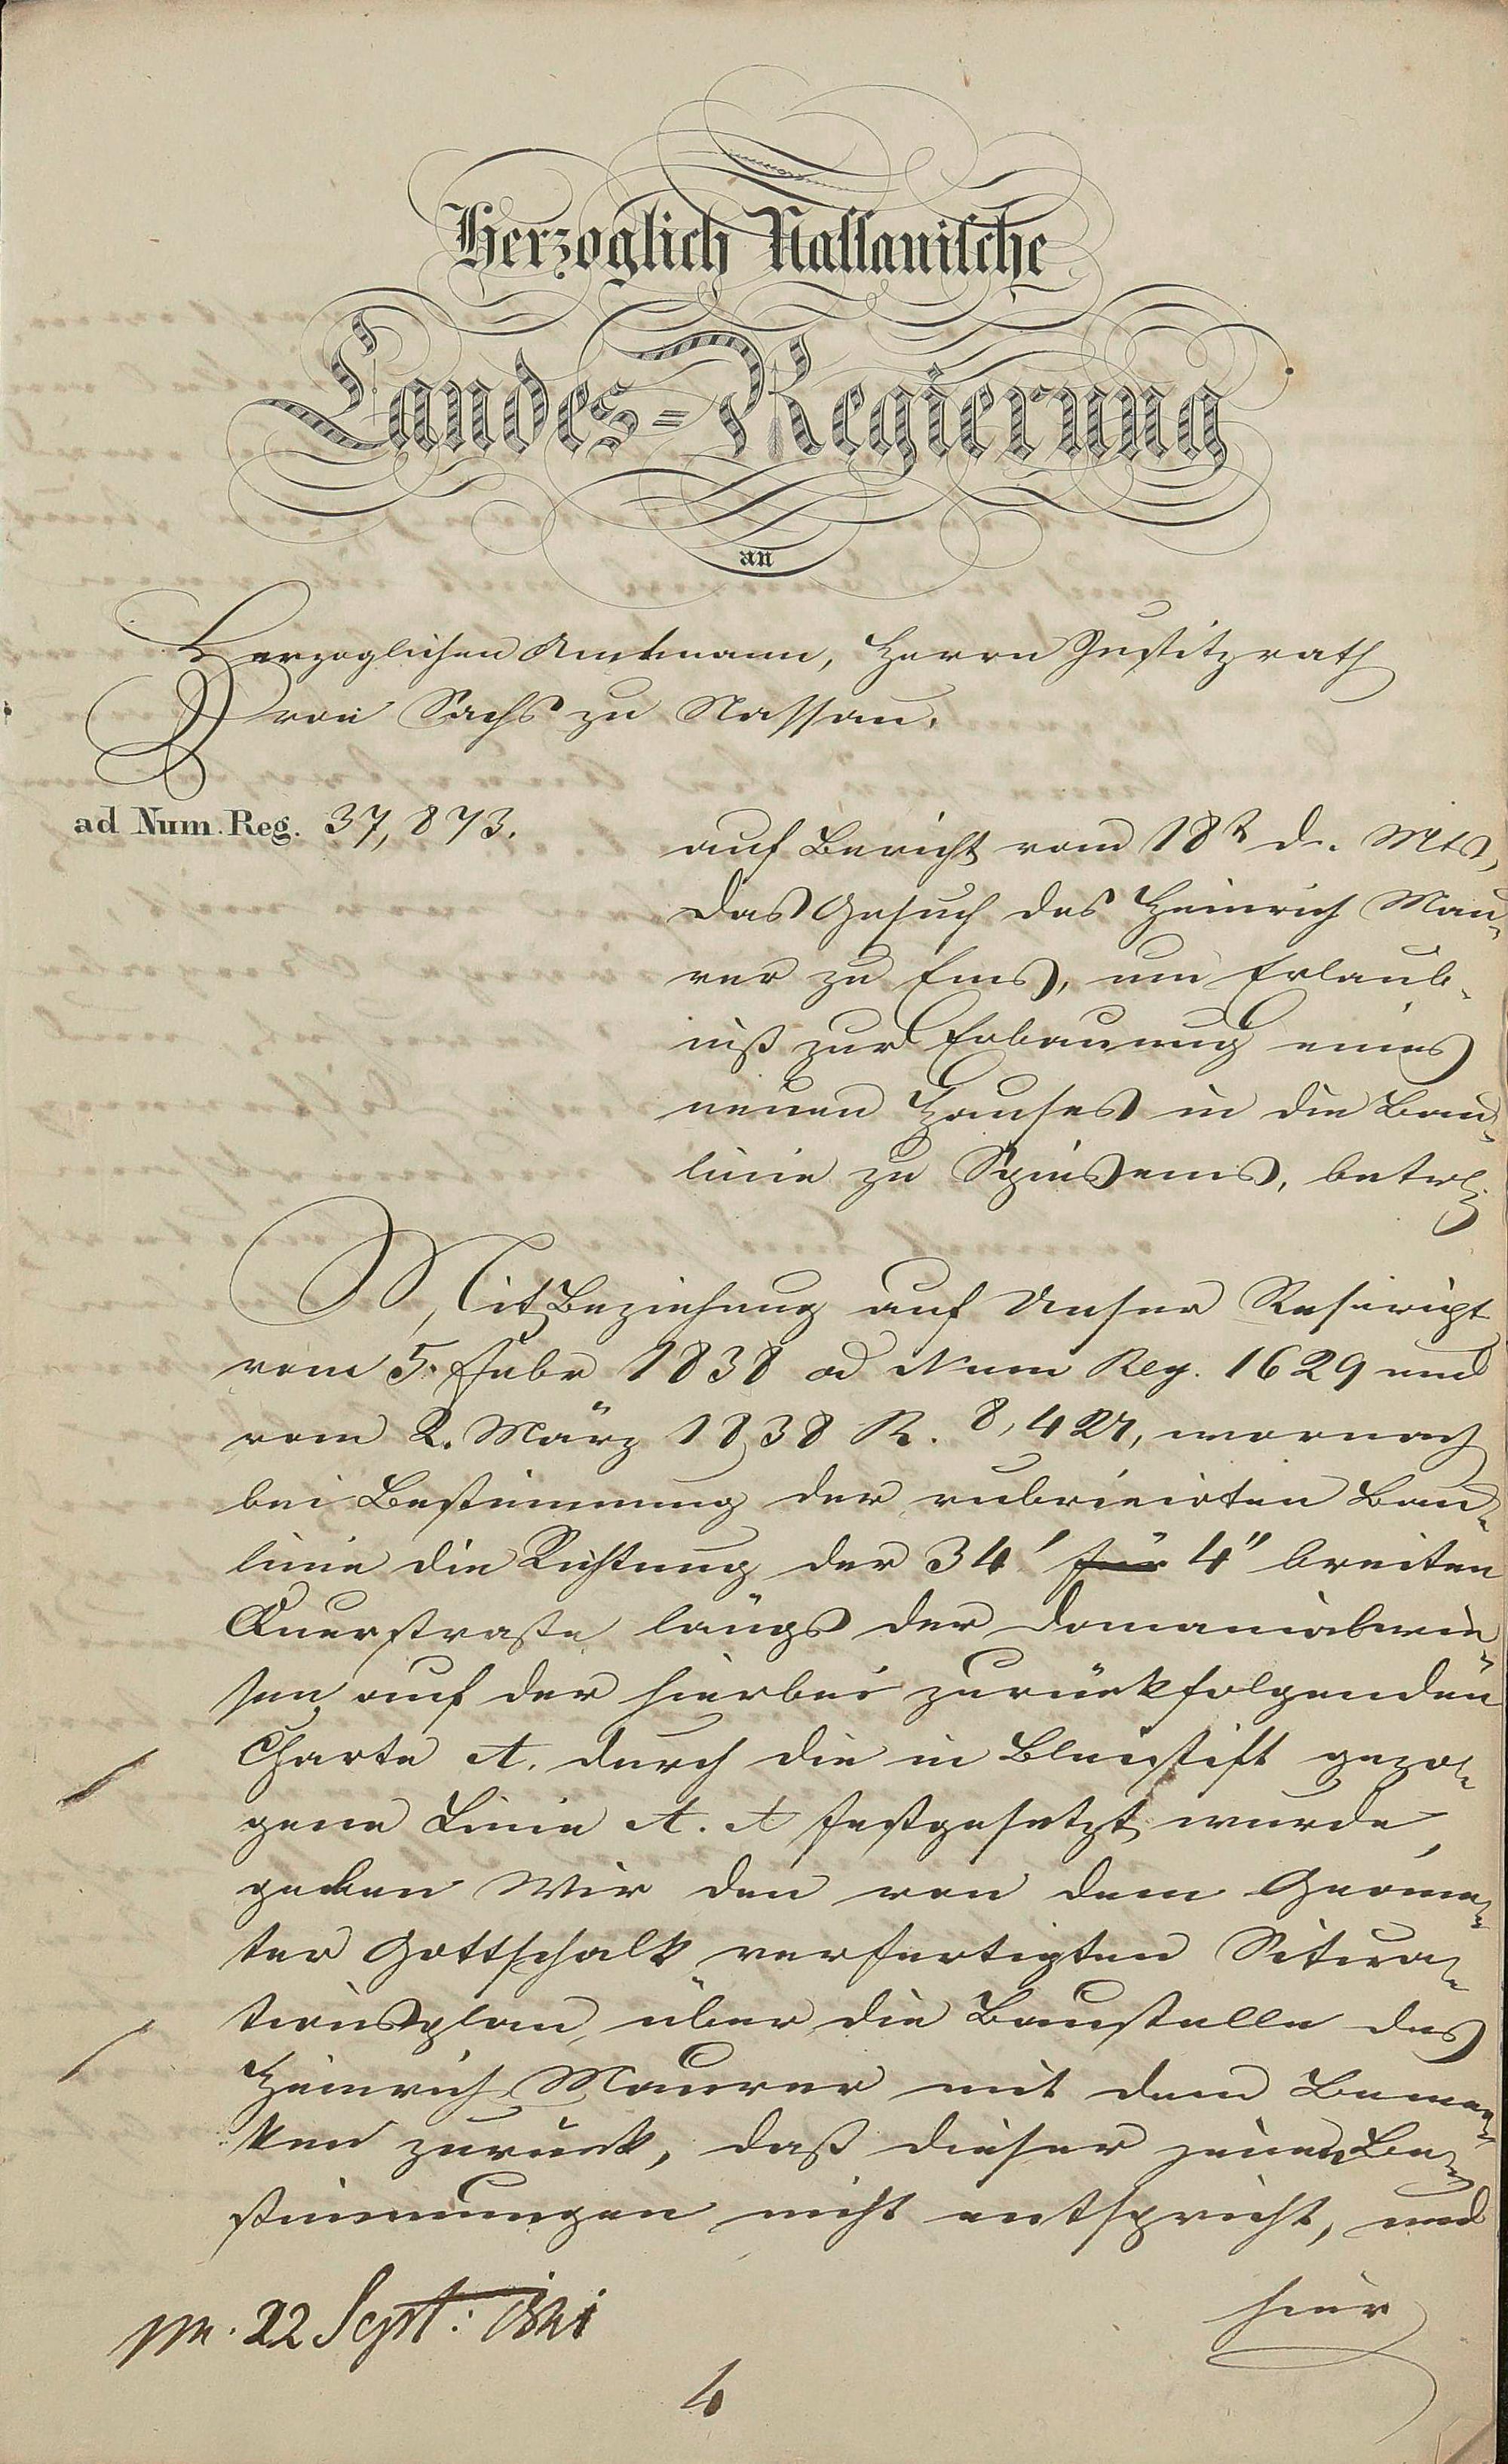 Herzoglich Nassauische
Landes=Regierung
an
Herzoglichen Amtmann, Herrn Justitzrath
von Sachs zu Nassau.
ad Num. Reg. 37,873.
auf Bericht vom 18t d. Mts,
das Gesuch des Heinrich Mau-
rer zu Ems, um Erlaub-
niß zur Erbauung eines
neuen Hauses in die Bau-
linie zu Spiesems, betr
Mit Beziehung auf Unser Rescript
vom 5. Febr 1838 ad Num Reg. 1629 und
vom 2. März 1838 R. 8,427, wornach
bei Bestimmung der rubricirten Bau-
linie die Richtung der 34' für 4" breiten
Querstraße längs der Domanialwie-
sen auf der hierbei zurückfolgenden
Charte A. durch die in Bleistift gezo-
gene Linie A. A festgesetzt wurde,
geben Wir den von dem Geome-
ter Gottschalk verfertigten Situa-
tionsplan über die Baustelle des
Heinrich Maurer mit dem Bemer-
ken zurück, daß dieser jenen Be-
stimmungen nicht entspricht, und
hier
pr. 22 Sept: 1841
4